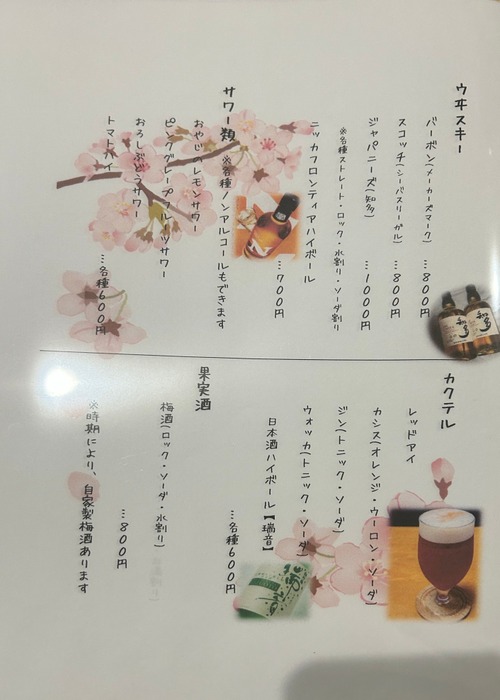 ウヰスキー
バーボン(メーカーズマーク) …800円
スコッチ(シーバスリーガル) …800円
ジャパニーズ(知多) …1000円
※各種ストレート・ロック・水割り・ソーダ割り
ニッカフロンティアハイボール
…700円
サワー類 ※各種ノンアルコールもできます
おやじのレモンサワー
ピンクグレープフルーツサワー
おろしぶどうサワー
トマトハイ
…各種600円
カクテル
レッドアイ
カシス(オレンジ・ウーロン・ソーダ)
ジン(トニック・ソーダ)
ウォッカ(トニック・ソーダ)
日本酒ハイボール【瑞音】
…各種600円
果実酒
梅酒(ロック・ソーダ・水割り)
…800円
※時期により、自家製梅酒あります